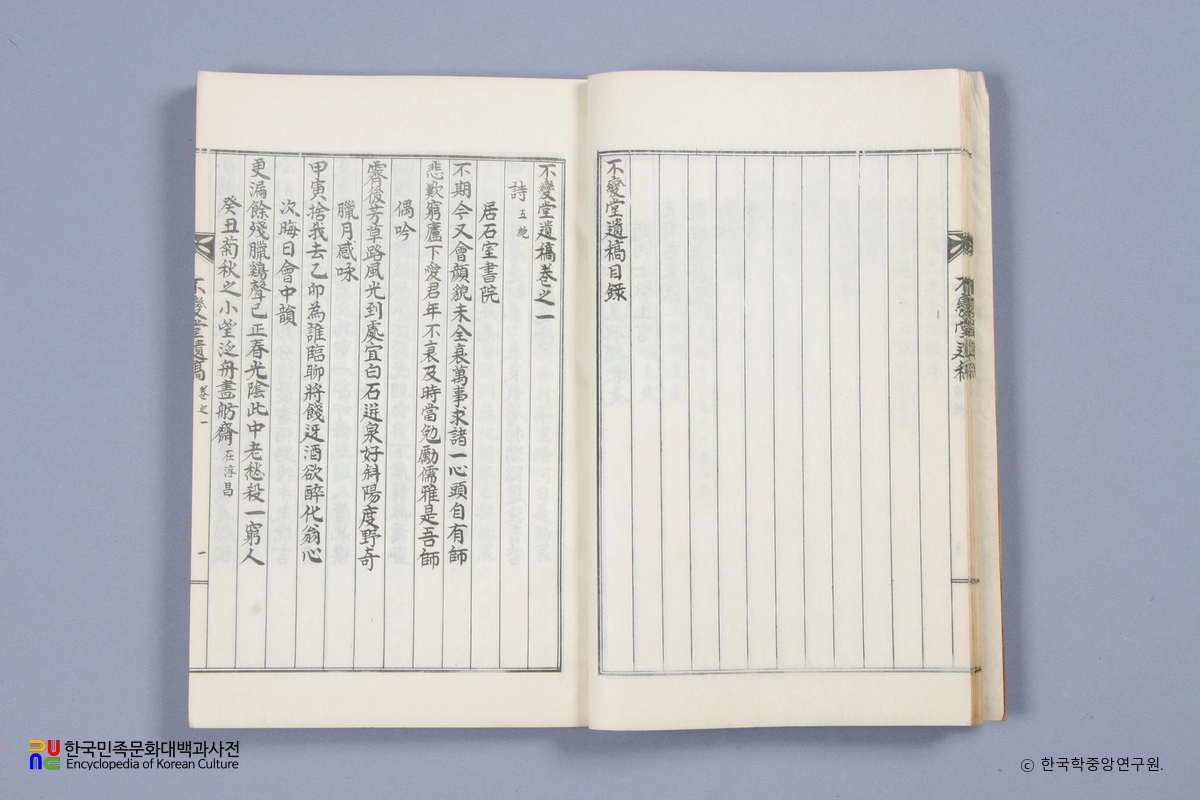 不變堂遺稿目錄
不變堂遺稿卷之一
詩 五絶
居石室書院
不期今又會顔貌未全衰萬事求諸一心頭自有師
悲歎窮廬下愛君年不衰及時當勉勵儒雅是吾師
偶吟
霽後芳草路風光到處宜白石逬泉好斜陽度野奇
臘月感咏
甲寅捨我去乙卯為誰臨聊將餞迓酒欲醉化翁心
次晦日會中韻
更漏餘殘臘鷄聲已正春光陰此中老愁殺一窮人
癸丑菊秋之小望泛舟畵舫齋 在淳昌
不變堂遺稿 卷之一
一
한국민족문화대백과사전
Encyclopedia of Korean Culture
ⓒ 한국학중앙연구원.